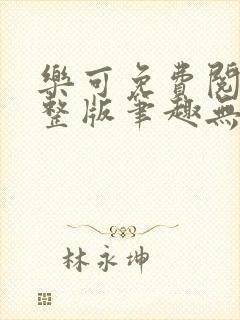 樂可免費閱
整版筆趣無
林永坤